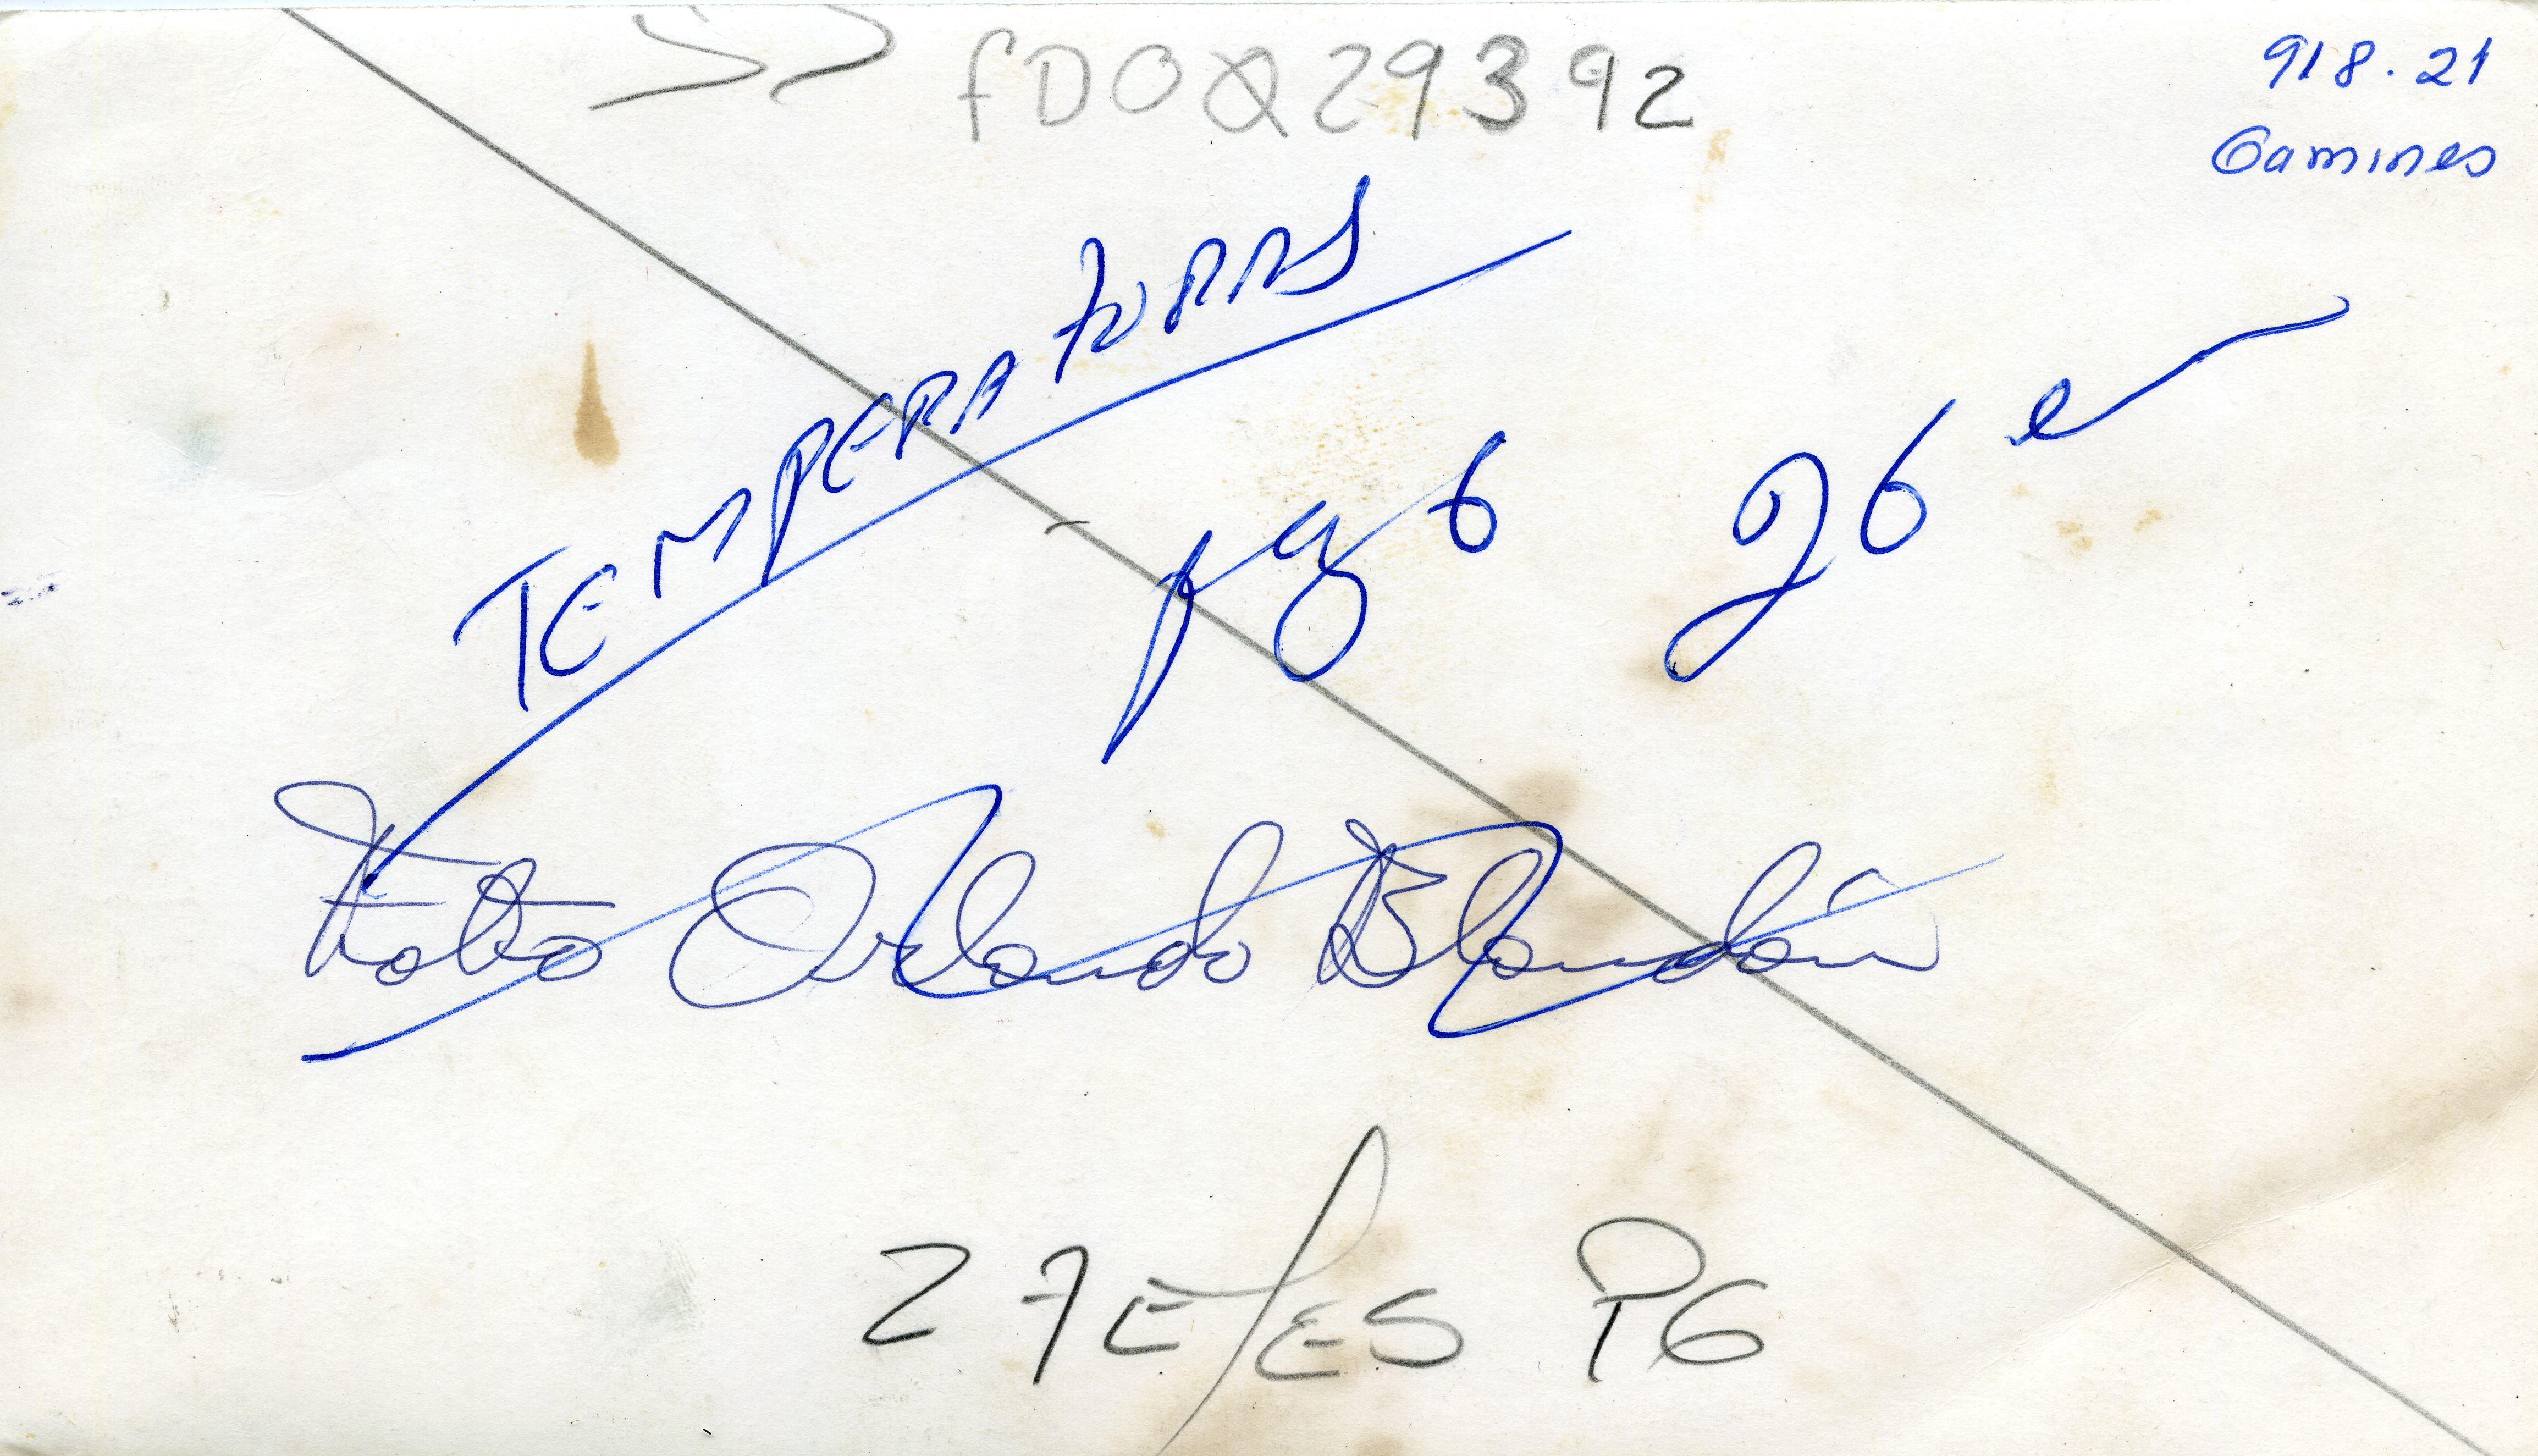 fDOQ29392
918.21
Gamines
TEMPERATURAS
pg 6 26 e
Fabio Orlando Blandón
27 E/ES P6